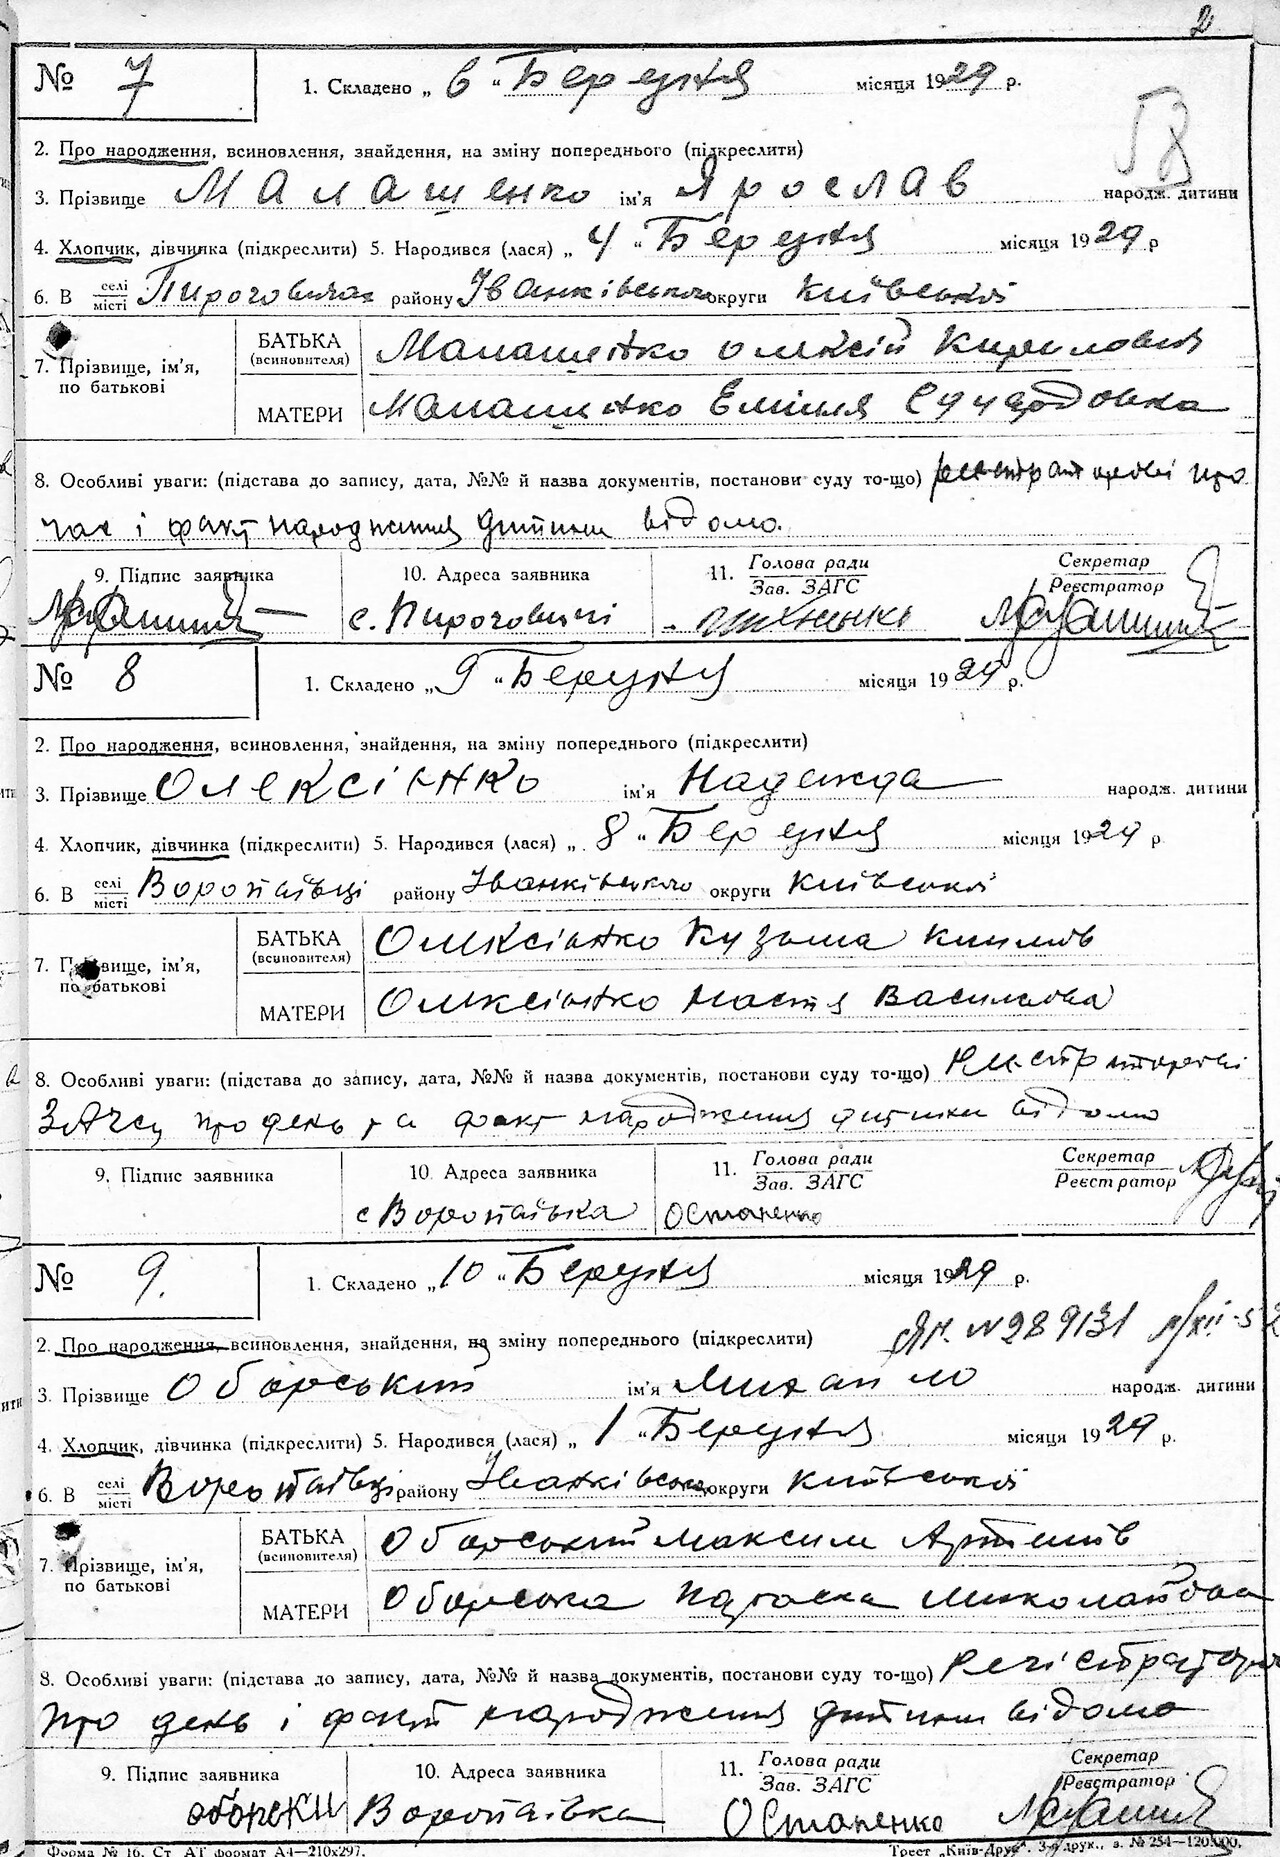 2
№ 7 1. Складено „ 6 “ Березня місяця 1929 р.
2. Про народження, всиновлення, знайдення, на зміну попереднього (підкреслити)
3. Прізвище Малашенко ім'я Ярослав народж. дитини
4. Хлопчик, дівчинка (підкреслити) 5. Народився (лася) „ 4 “ Березня місяця 1929 р
6. В селі місті Пироговичах району Іванківського округи Київської
7. Прізвище, ім'я, по батькові
БАТЬКА (всиновителя) Малашенко Олексій Кирилович
МАТЕРИ Малашенко Емілія Едуардовна
8. Особливі уваги: (підстава до запису, дата, №№ й назва документів, постанови суду то-що) про
час і факт народження дитини відомо.
9. Підпис заявника 10. Адреса заявника 11. Голова ради Зав. ЗАГС Секретар Реєстратор
с. Пироговичі
№ 8 1. Складено „ 9 “ Березня місяця 1929 р.
2. Про народження, всиновлення, знайдення, на зміну попереднього (підкреслити)
3. Прізвище Олексієнко ім'я Надежда народж. дитини
4. Хлопчик, дівчинка (підкреслити) 5. Народився (лася) „ 8 “ Березня місяця 1929 р
6. В селі місті Воропаївці району Іванківського округи Київської
7. Прізвище, ім'я, по батькові
БАТЬКА (всиновителя) Олексієнко Кузьма
МАТЕРИ Олексієнко Настя Василівна
8. Особливі уваги: (підстава до запису, дата, №№ й назва документів, постанови суду то-що) Реєстраторові
ЗАГСу про день та факт народження дитини відомо
9. Підпис заявника 10. Адреса заявника 11. Голова ради Зав. ЗАГС Секретар Реєстратор
с Воропаївка Остапенко
№ 9. 1. Складено „ 10 “ Березня місяця 1929 р.
2. Про народження, всиновлення, знайдення, на зміну попереднього (підкреслити) N 289131
3. Прізвище Оборський ім'я Михайло народж. дитини
4. Хлопчик, дівчинка (підкреслити) 5. Народився (лася) „ 1 “ Березня місяця 1929 р.
6. В селі місті Воропаївці району Іванківського округи Київської
7. Прізвище, ім'я, по батькові
БАТЬКА (всиновителя) Оборський Максим Артемів
МАТЕРИ Оборська Параска Миколаївна
8. Особливі уваги: (підстава до запису, дата, №№ й назва документів, постанови суду то-що)
про день і факт народження дитини відомо
9. Підпис заявника 10. Адреса заявника 11. Голова ради Зав. ЗАГС Секретар Реєстратор
оборски Воропаївка Остапенко
Форма № 16. Ст. АТ формат А4—210х297. Трест „Київ-Друк“. 3-я друк., з. № 254—120.000.